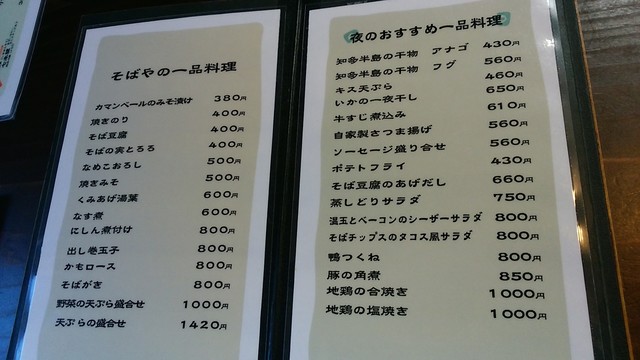 そばやの一品料理
カマンベールのみそ漬け 380円
焼きのり 400円
そば豆腐 400円
そばの実とろろ 400円
なめこおろし 500円
焼きみそ 500円
くみあげ湯葉 600円
なす煮 600円
にしん煮付け 800円
出し巻玉子 800円
かもロース 800円
そばがき 800円
野菜の天ぷら盛合せ 1000円
天ぷらの盛合せ 1420円
夜のおすすめ一品料理
知多半島の干物 アナゴ 430円
知多半島の干物 フグ 560円
キス天ぷら 460円
いかの一夜干し 650円
牛すじ煮込み 610円
自家製さつま揚げ 560円
ソーセージ盛り合せ 560円
ポテトフライ 430円
そば豆腐のあげだし 660円
蒸しどりサラダ 750円
温玉とベーコンのシーザーサラダ 800円
そばチップスのタコス風サラダ 800円
鴨つくね 800円
豚の角煮 850円
地鶏の合焼き 1000円
地鶏の塩焼き 1000円